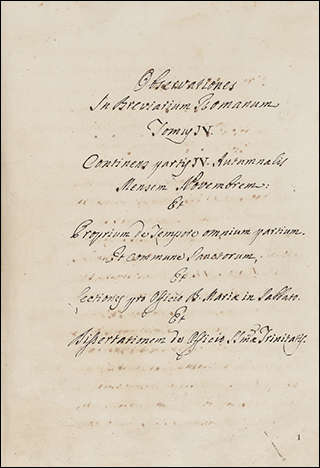 Observationes
In Breviarium Romanum
Tomus IV.
Continens partis IV. Autumnalis
Mensem Novembrem:
Et
Proprium de Tempore omnium partium.
Et commune Sanctorum,
Et
Lectiones pro Officio B. Mariæ in Sabbato.
Et
Dissertationem de Officio SSmæ Trinitatis.
1